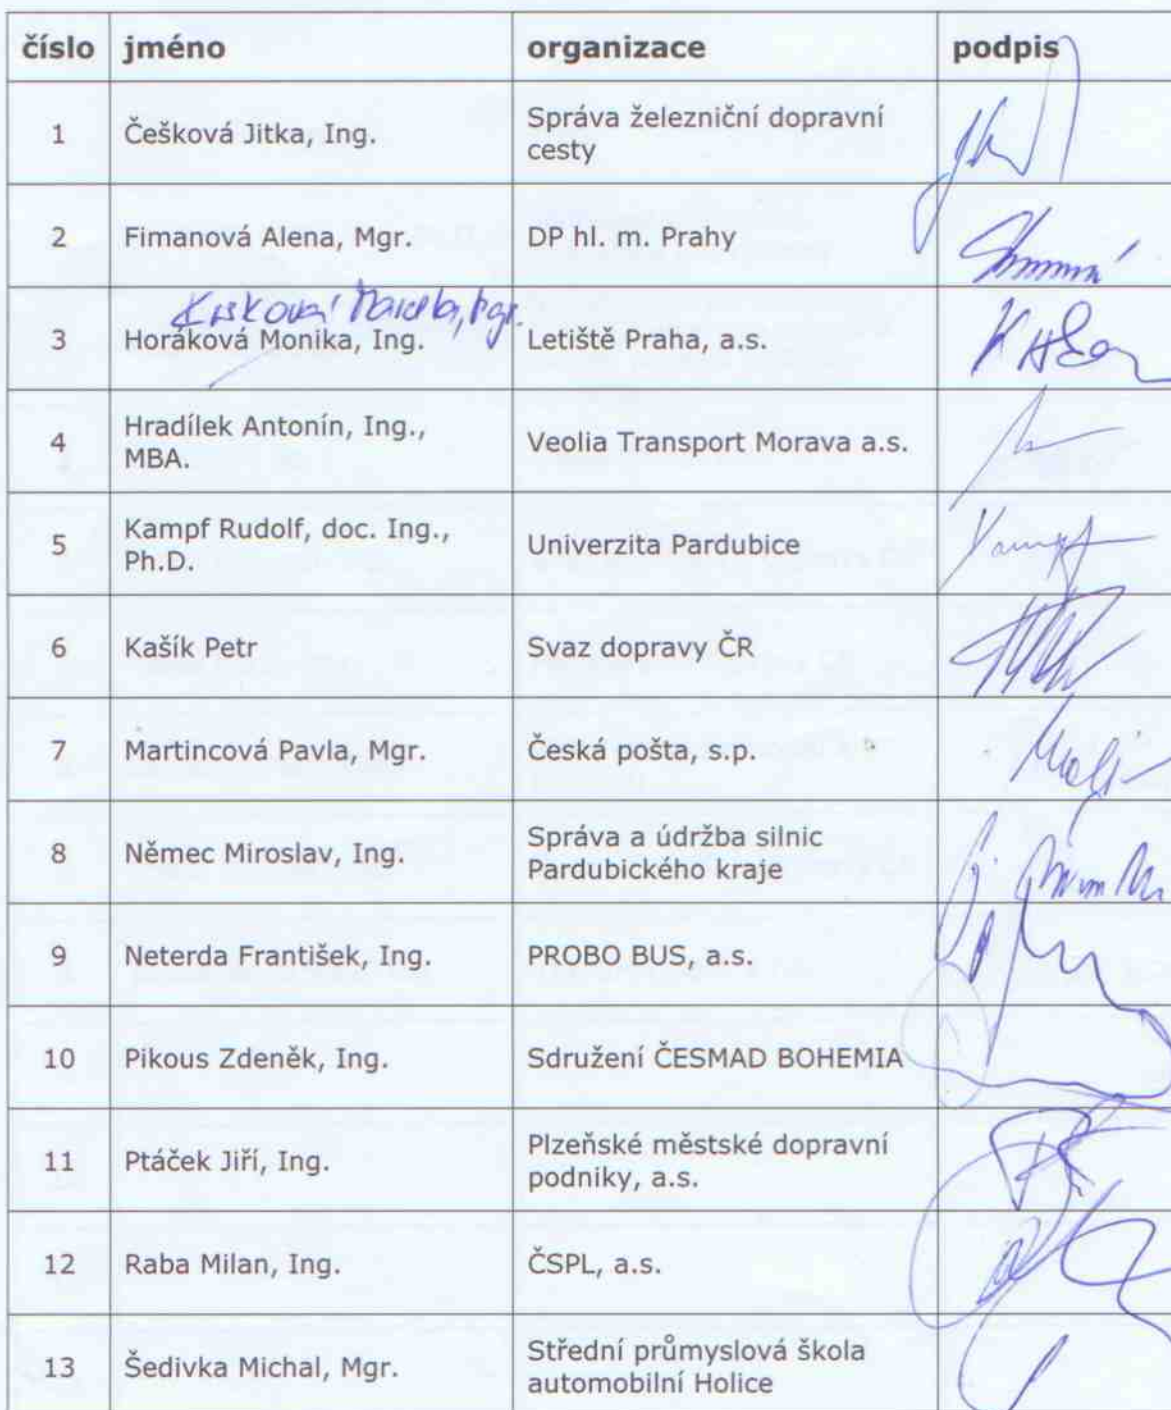 číslo jméno organizace podpis
1 Češková Jitka, Ing. Správa železniční dopravní
cesty
2 Fimanová Alena, Mgr. DP hl. m. Prahy
3 Horáková Monika, Ing. Letiště Praha, a.s.
4 Hradílek Antonín, Ing., Veolia Transport Morava a.s.
MBA.
5 Kampf Rudolf, doc. Ing., Univerzita Pardubice
Ph.D.
6 Kašík Petr Svaz dopravy ČR
7 Martincová Pavla, Mgr. Česká pošta, s.p.
8 Němec Miroslav, Ing. Správa a údržba silnic
Pardubického kraje
9 Neterda František, Ing. PROBO BUS, a.s.
10 Pikous Zdeněk, Ing. Sdružení ČESMAD BOHEMIA
11 Ptáček Jiří, Ing. Plzeňské městské dopravní
podniky, a.s.
12 Raba Milan, Ing. ČSPL, a.s.
13 Šedivka Michal, Mgr. Střední průmyslová škola
automobilní Holice